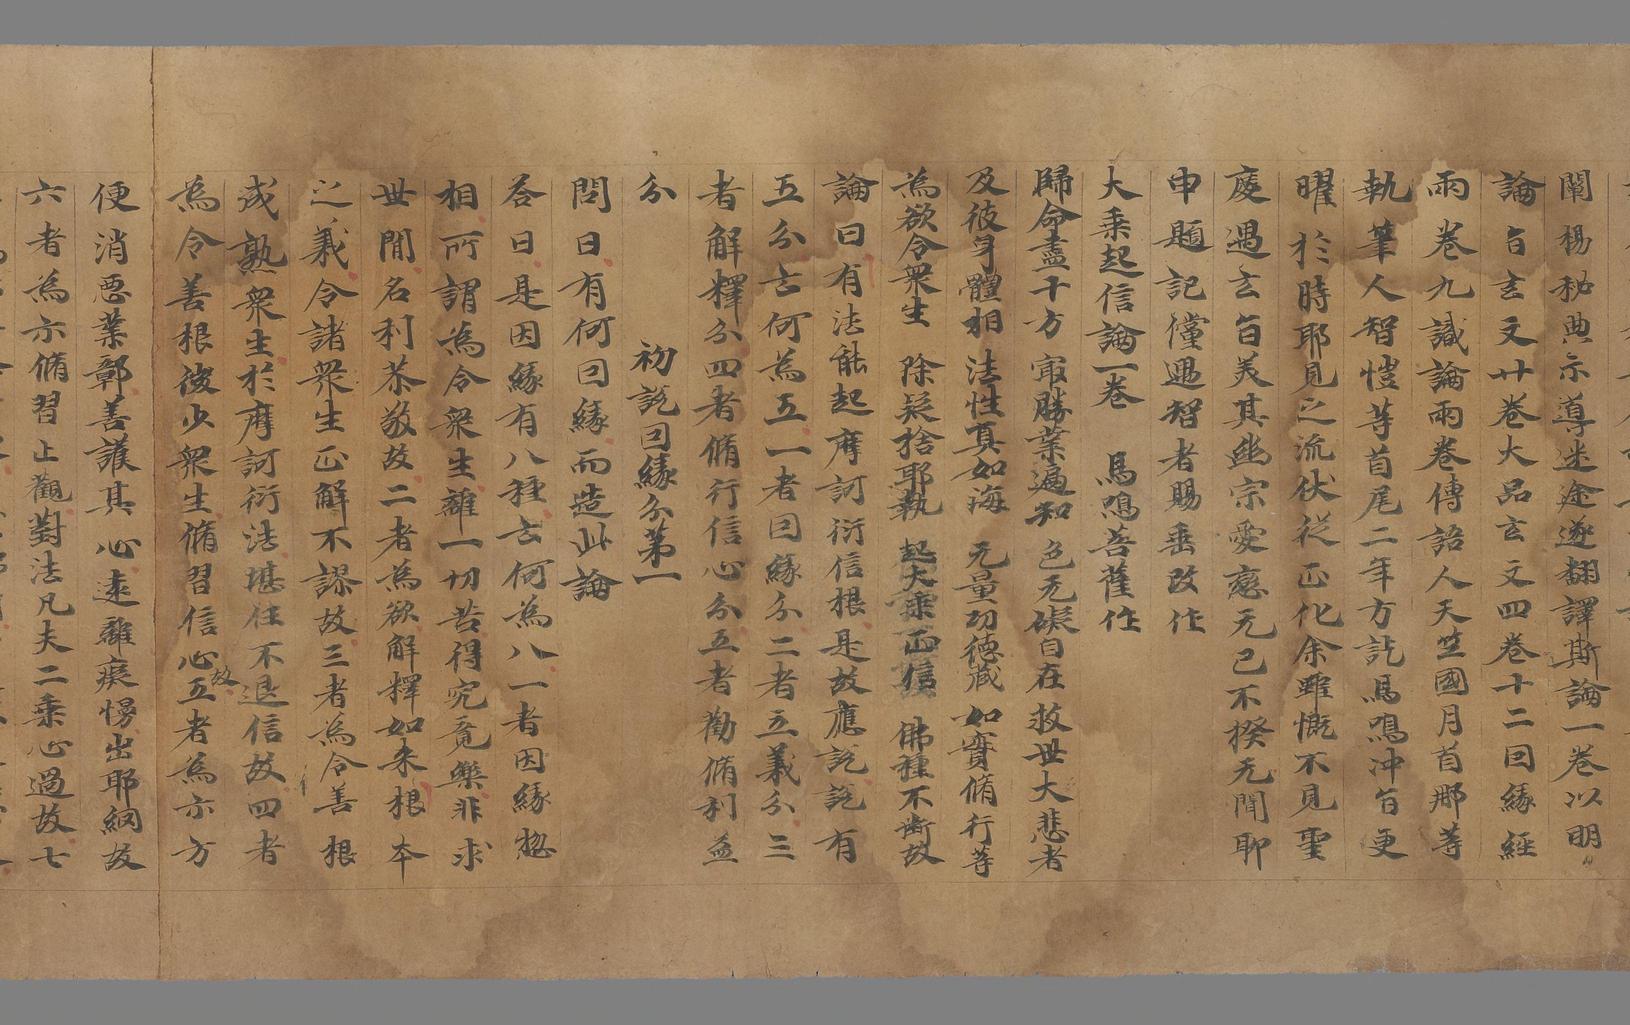 闡揚秘典示導迷途遂翻譯斯論一卷以明
論旨玄文廿卷大品玄文四卷十二因緣經
兩卷九識論兩卷傳語人天竺國月首那等
執筆人智愷等首尾二年方訖馬鳴冲旨更
曜於時耶見之流伏從正化余雖慨不見聖
慶遇玄旨美其幽宗愛戀无已不揆无聞聊
申題記儻遇智者賜垂改作
大乘起信論一卷 馬鳴菩薩作
歸命盡十方 寂勝業遍知 色无礙自在 救世大悲者
及彼身體相 法性真如海 无量功德藏 如實脩行等
為欲令衆生 除疑捨耶執 起大乘正信 佛種不斷故
論曰有法能起摩訶衍信根是故應說說有
五分云何為五一者因緣分二者立義分三
者解釋分四者脩行信心分五者勸脩利益
分
初說因緣分第一
問曰有何因緣而造此論
荅曰是因緣有八種云何為八一者因緣揔
相所謂為令衆生離一切苦得究竟樂非求
世間名利恭敬故二者為欲解釋如来根本
之義令諸衆生正解不謬故三者為令善根
成熟衆生於摩訶衍法堪住不退信故四者
為令善根微少衆生脩習信心故五者為示方
便消惡業鄣善護其心遠離癡慢出耶網故
六者為示脩習止觀對法凡夫二乘心過故七